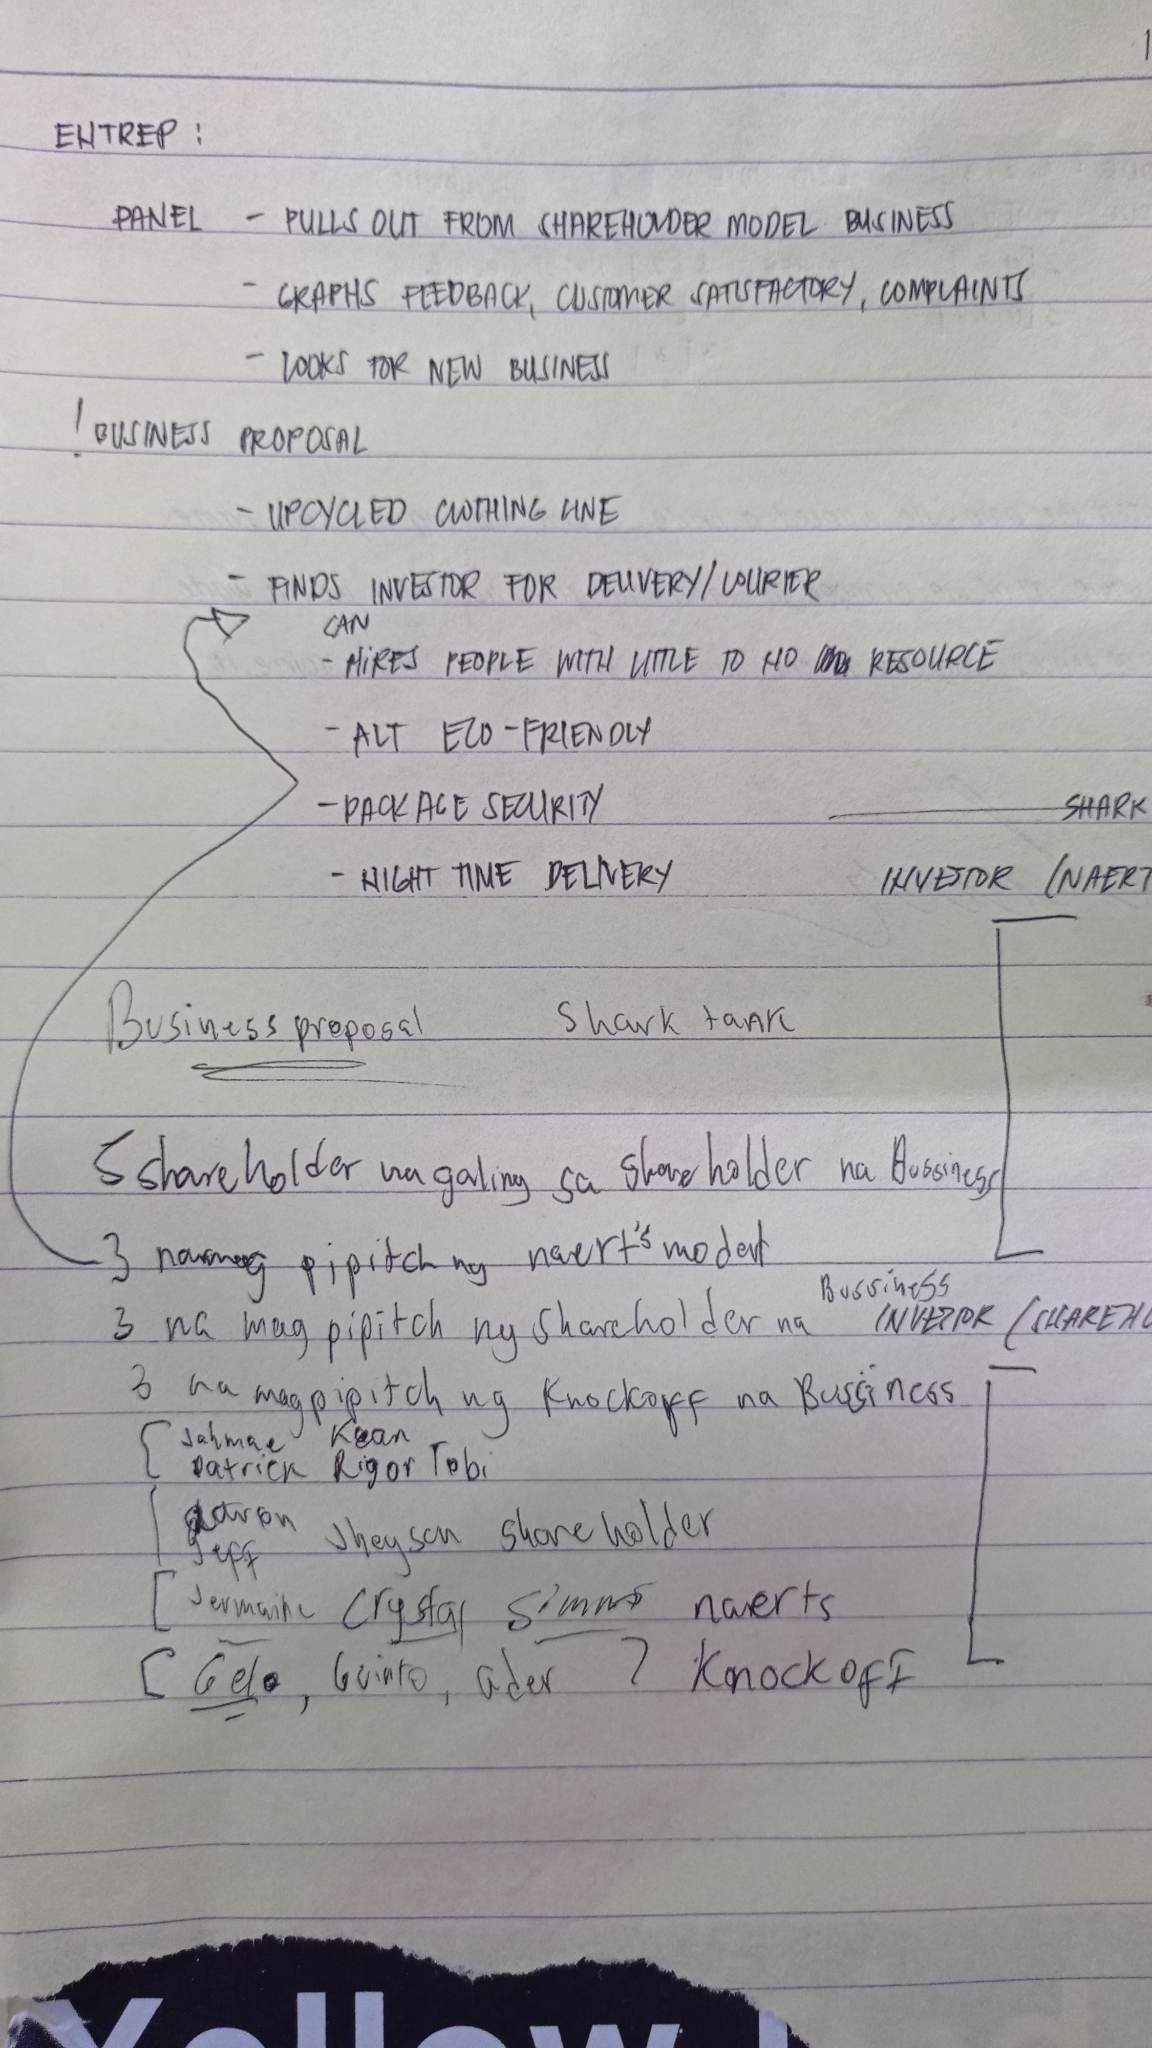 ENTREP :
PANEL - PULLS OUT FROM SHAREHOLDER MODEL BUSINESS
- GRAPHS FEEDBACK, CUSTOMER SATISFACTORY, COMPLAINTS
- LOOKS FOR NEW BUSINESS
! BUSINESS PROPOSAL
- UPCYCLED CLOTHING LINE
- FINDS INVESTOR FOR DELIVERY/COURIER
CAN
- HIRES PEOPLE WITH LITTLE TO NO RESOURCE
- ALT ECO-FRIENDLY
- PACKAGE SECURITY
SHARK
- NIGHT TIME DELIVERY
INVESTOR (NAERT
Business proposal Shark tank
5 shareholder na galing sa shareholder na Bussiness
3 pipitch ng naert's
3 na mag pipitch ng shareholder na Bussiness
INVESTOR (SHAREHO
3 na magpipitch ng Knockoff na Bussiness
Jahmae Kean
Patrick Rigor Tobi
Aaron
Jeff Jheyson shareholder
Jermaine Crystal Simms naerts
Gelo, Guinto, ader ? Knockoff
Yellow